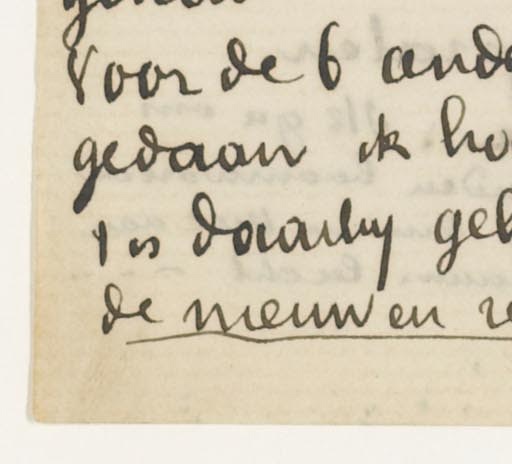 Voor de 6 ande
gedaan ik ho
is daarby geb
de nieuw en